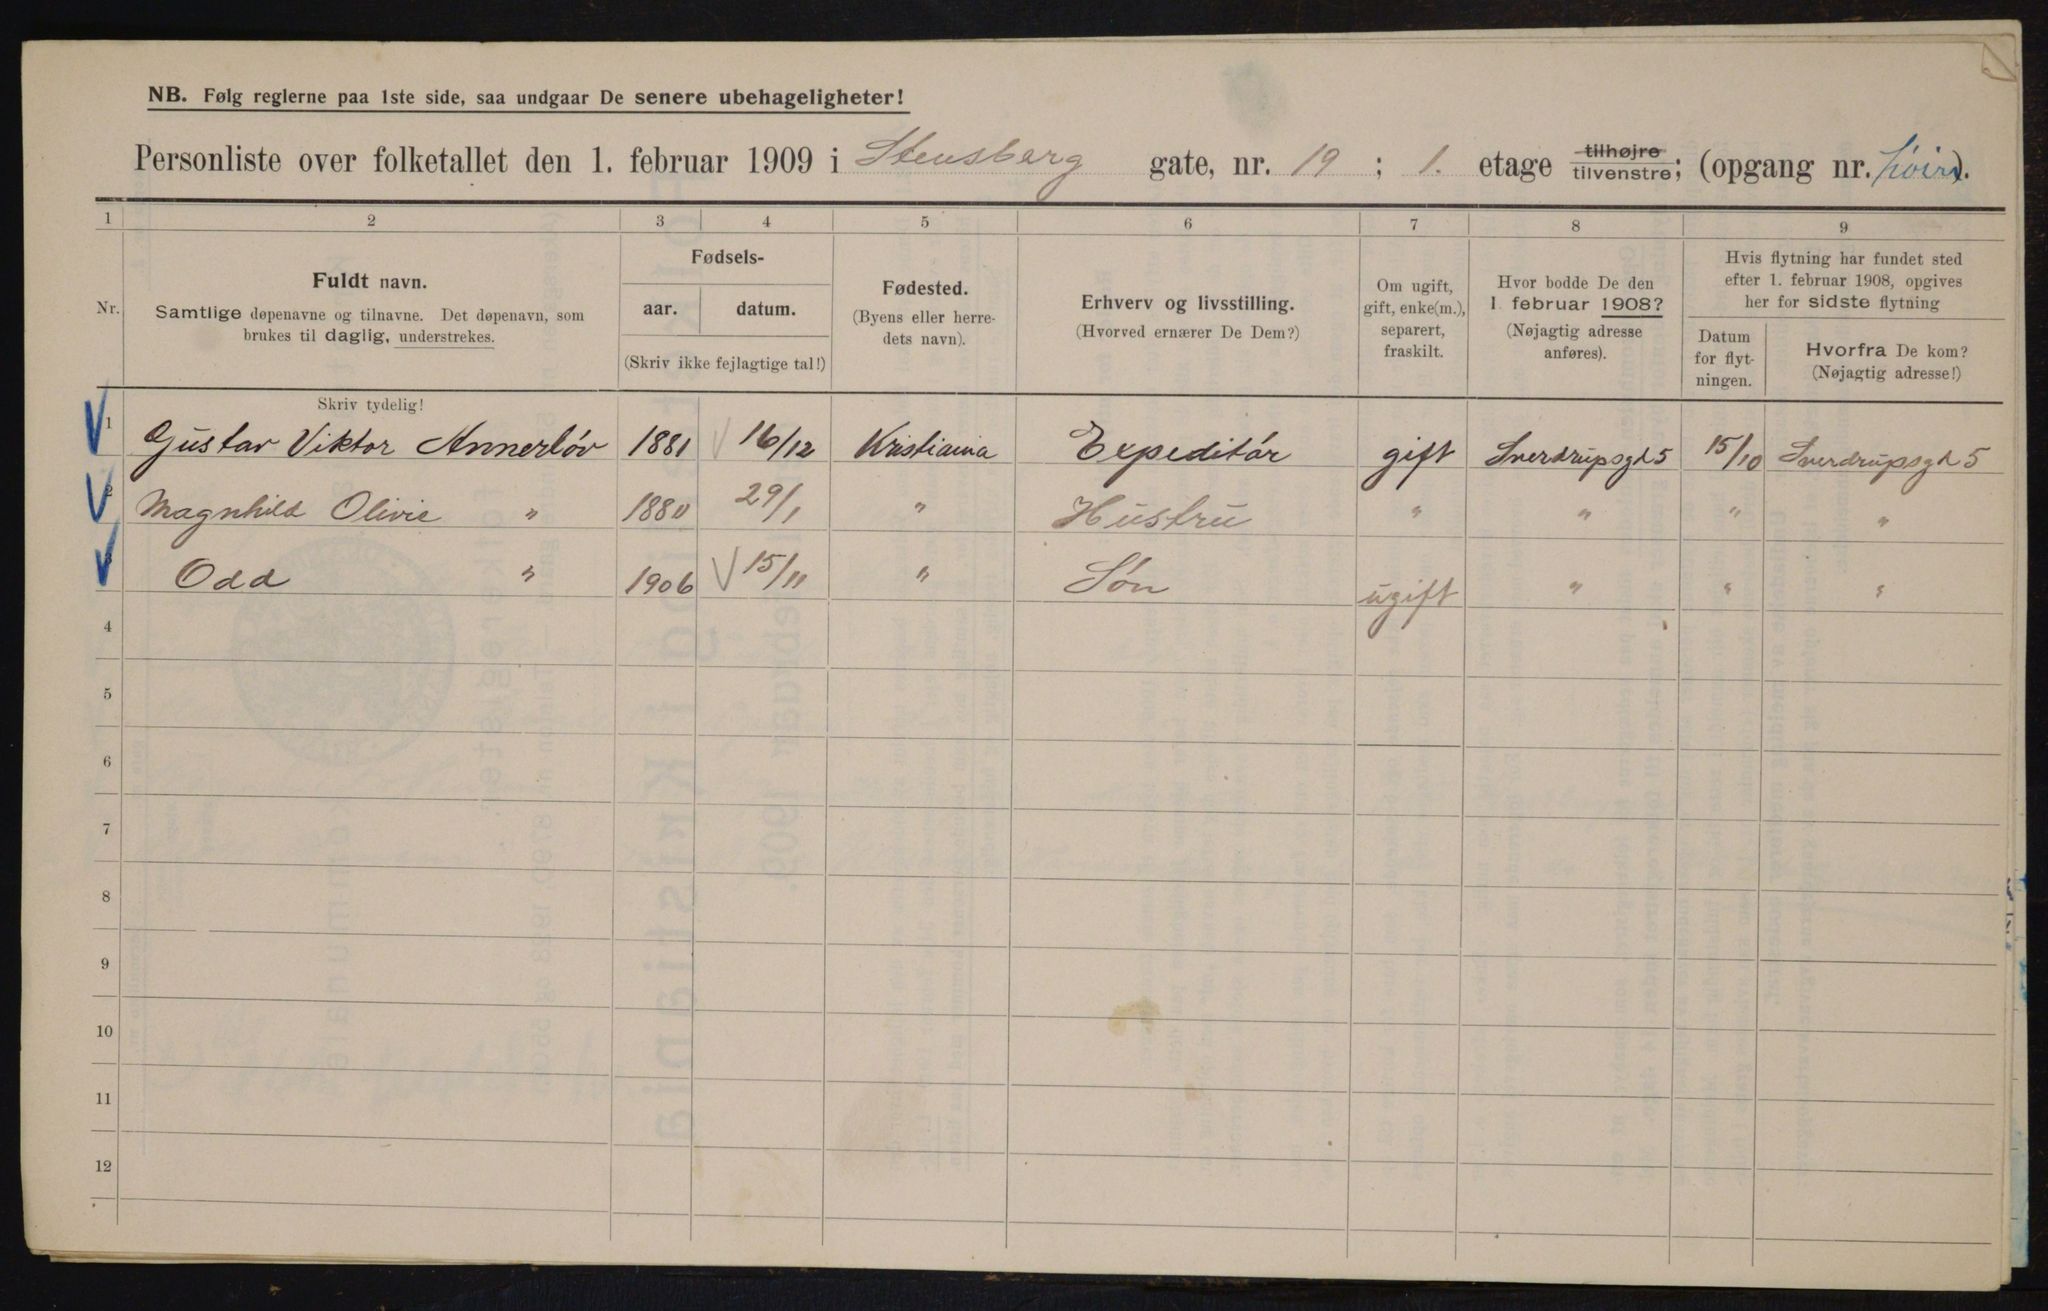 NB. Følg reglerne paa 1ste side, saa undgaar De senere ubehageligheter!
Personliste over folketallet den 1. februar 1909 i Stensberg gate, nr. 19 ; 1. etage tilhøjre tilvenstre; (opgang nr. høire).
1 2 3 4 5 6 7 8 9
Nr.
Fuldt navn.
Samtlige døpenavne og tilnavne. Det døpenavn, som
brukes til daglig, understrekes.
Skriv tydelig!
Fødsels-
aar. datum.
(Skriv ikke fejlagtige tal!)
Fødested.
(Byens eller herre-
dets navn).
Erhverv og livsstilling.
(Hvorved ernærer De Dem?)
Om ugift,
gift, enke(m.),
separert,
fraskilt.
Hvor bodde De den
1. februar 1908?
(Nøjagtig adresse
anføres).
Hvis flytning har fundet sted
efter 1. februar 1908, opgives
her for sidste flytning
Datum
for flyt-
ningen.
Hvorfra De kom?
(Nøjagtig adresse!)
1 Gustav Viktor Annerløv 1881 16/12 Kristiania Expeditór gift Sverdrupsgd 5 15/10 Sverdrupsgd 5
2 Magnhild Olivie " 1880 29/1 " Hustru " " " "
3 Odd " 1906 15/11 " Søn ugift " " "
4
5
6
7
8
9
10
11
12